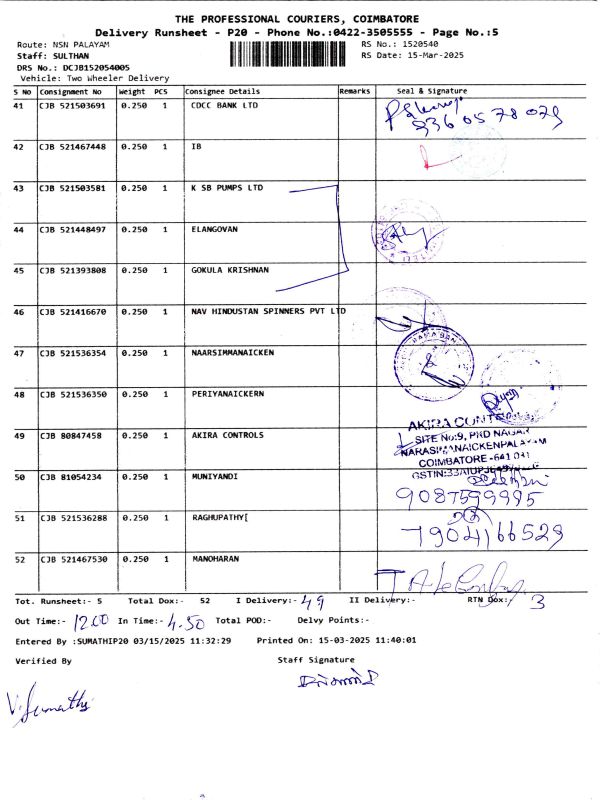 THE PROFESSIONAL COURIERS, COIMBATORE
Delivery Runsheet - P20 - Phone No.:0422-3505555 - Page No.:5
Route: NSN PALAYAM RS No.: 1520540
Staff: SULTHAN RS Date: 15-Mar-2025
DRS No.: DCJB152054005
Vehicle: Two Wheeler Delivery
S No Consignment No Weight PCS Consignee Details Remarks Seal & Signature
41 CJB 521503691 0.250 1 CDCC BANK LTD
42 CJB 521467448 0.250 1 IB
43 CJB 521503581 0.250 1 K SB PUMPS LTD
44 CJB 521448497 0.250 1 ELANGOVAN
45 CJB 521393808 0.250 1 GOKULA KRISHNAN
46 CJB 521416670 0.250 1 NAV HINDUSTAN SPINNERS PVT LTD
47 CJB 521536354 0.250 1 NAARSIMMANAICKEN
48 CJB 521536350 0.250 1 PERIYANAICKERN
49 CJB 80847458 0.250 1 AKIRA CONTROLS
AKIRA CONT
SITE No:9, PND NAGAR
NARASIMANAICKENPALAYAM
COIMBATORE - 641 031
50 CJB 81054234 0.250 1 MUNIYANDI
9087599995
51 CJB 521536288 0.250 1 RAGHUPATHY[
7904166529
52 CJB 521467530 0.250 1 MANOHARAN
Tot. Runsheet:- 5 Total Dox:- 52 I Delivery:- 49 II Delivery:- RTN Dox:- 3
Out Time:- 12.00 In Time:- 4.50 Total POD:- Delvy Points:-
Entered By :SUMATHIP20 03/15/2025 11:32:29 Printed On: 15-03-2025 11:40:01
Verified By Staff Signature
V. Sumathi